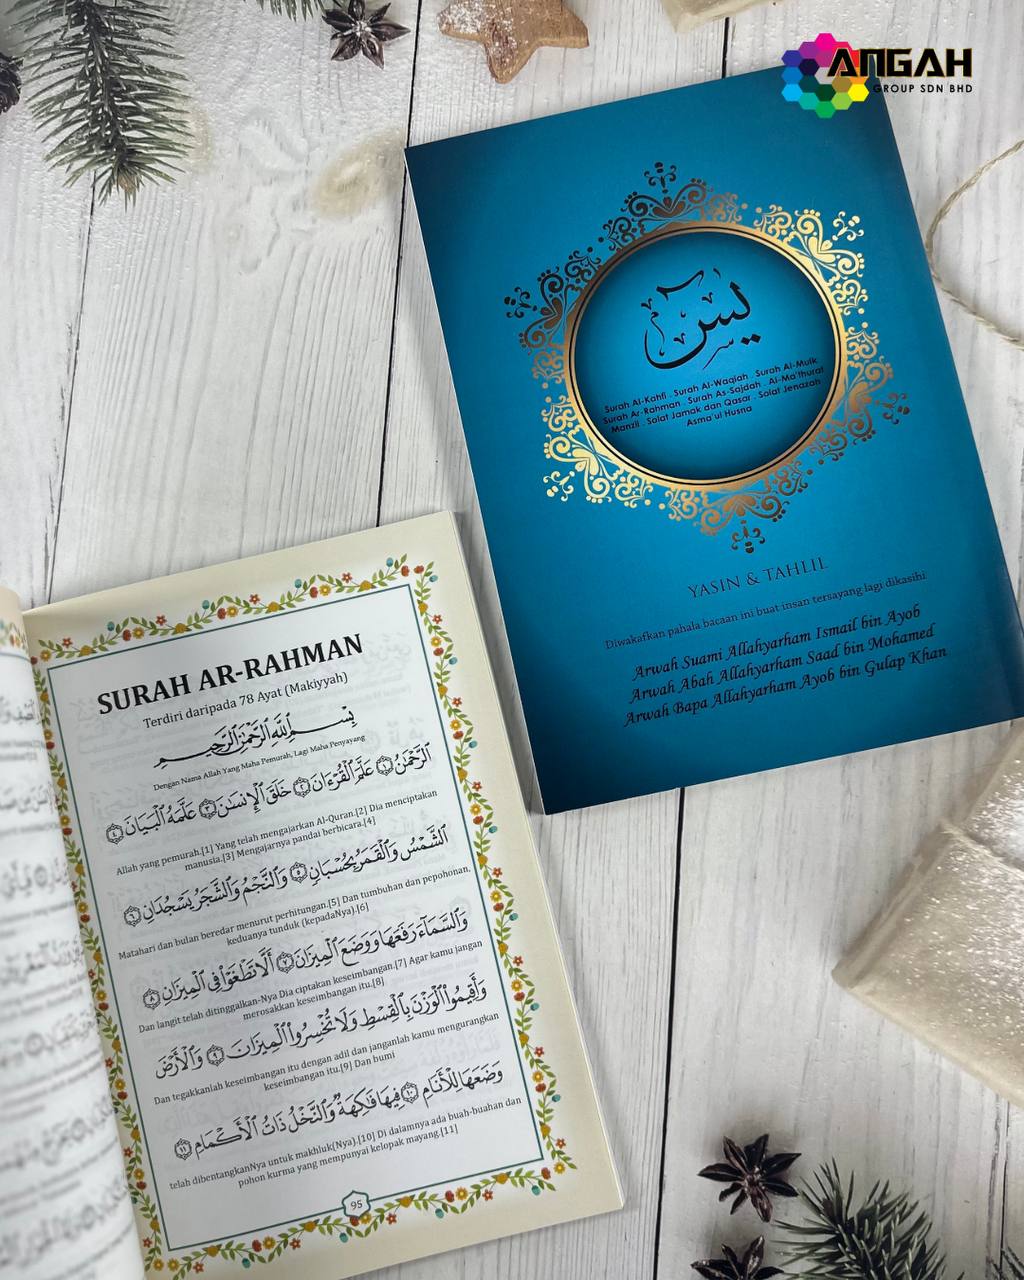 ANGAH
GROUP SDN BHD
يس
Surah Al-Kahfi . Surah Al-Waqiah . Surah Al-Mulk
Surah Ar-Rahman . Surah As-Sajdah . Al-Ma'thurat
Manzil . Solat Jamak dan Qasar . Solat Jenazah
Asma'ul Husna
YASIN & TAHLIL
Diwakafkan pahala bacaan ini buat insan tersayang lagi dikasihi
Arwah Suami Allahyarham Ismail bin Ayob
Arwah Abah Allahyarham Saad bin Mohamed
Arwah Bapa Allahyarham Ayob bin Gulap Khan
SURAH AR-RAHMAN
Terdiri daripada 78 Ayat (Makiyyah)
بِسْمِ ٱللَّهِ ٱلرَّحْمَٰنِ ٱلرَّحِيمِ
Dengan Nama Allah Yang Maha Pemurah, Lagi Maha Penyayang
ٱلرَّحْمَٰنُ ١ عَلَّمَ ٱلْقُرْءَانَ ٢ خَلَقَ ٱلْإِنسَٰنَ ٣ عَلَّمَهُ ٱلْبَيَانَ ٤
Allah yang pemurah.[1] Yang telah mengajarkan Al-Quran.[2] Dia menciptakan
manusia.[3] Mengajarnya pandai berbicara.[4]
ٱلشَّمْسُ وَٱلْقَمَرُ بِحُسْبَانٍ ٥ وَٱلنَّجْمُ وَٱلشَّجَرُ يَسْجُدَانِ ٦
Matahari dan bulan beredar menurut perhitungan.[5] Dan tumbuhan dan pepohonan,
keduanya tunduk (kepadaNya).[6]
وَٱلسَّمَآءَ رَفَعَهَا وَوَضَعَ ٱلْمِيزَانَ ٧ أَلَّا تَطْغَوْا۟ فِى ٱلْمِيزَانِ ٨
Dan langit telah ditinggalkan-Nya Dia ciptakan keseimbangan.[7] Agar kamu jangan
merosakkan keseimbangan itu.[8]
وَأَقِيمُوا۟ ٱلْوَزْنَ بِٱلْقِسْطِ وَلَا تُخْسِرُوا۟ ٱلْمِيزَانَ ٩ وَٱلْأَرْضَ
Dan tegakkanlah keseimbangan itu dengan adil dan janganlah kamu mengurangkan
keseimbangan itu.[9] Dan bumi
وَضَعَهَا لِلْأَنَامِ ١٠ فِيهَا فَٰكِهَةٌ وَٱلنَّخْلُ ذَاتُ ٱلْأَكْمَامِ ١١
telah dibentangkanNya untuk makhluk(Nya).[10] Di dalamnya ada buah-buahan dan
pohon kurma yang mempunyai kelopak mayang.[11]
95